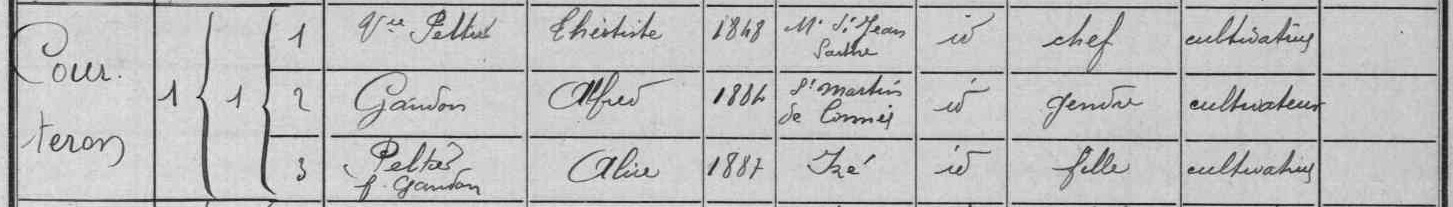 Cour.
teron
1 1
1 Vve Peltier Théotiste 1848 Mt St Jean
Sarthe id chef cultivatrice
2 Gandon Alfred 1884 St Martin
de Connée id gendre cultivateur
3 Peltier
f. Gandon Alice 1887 Izé id fille cultivatrice